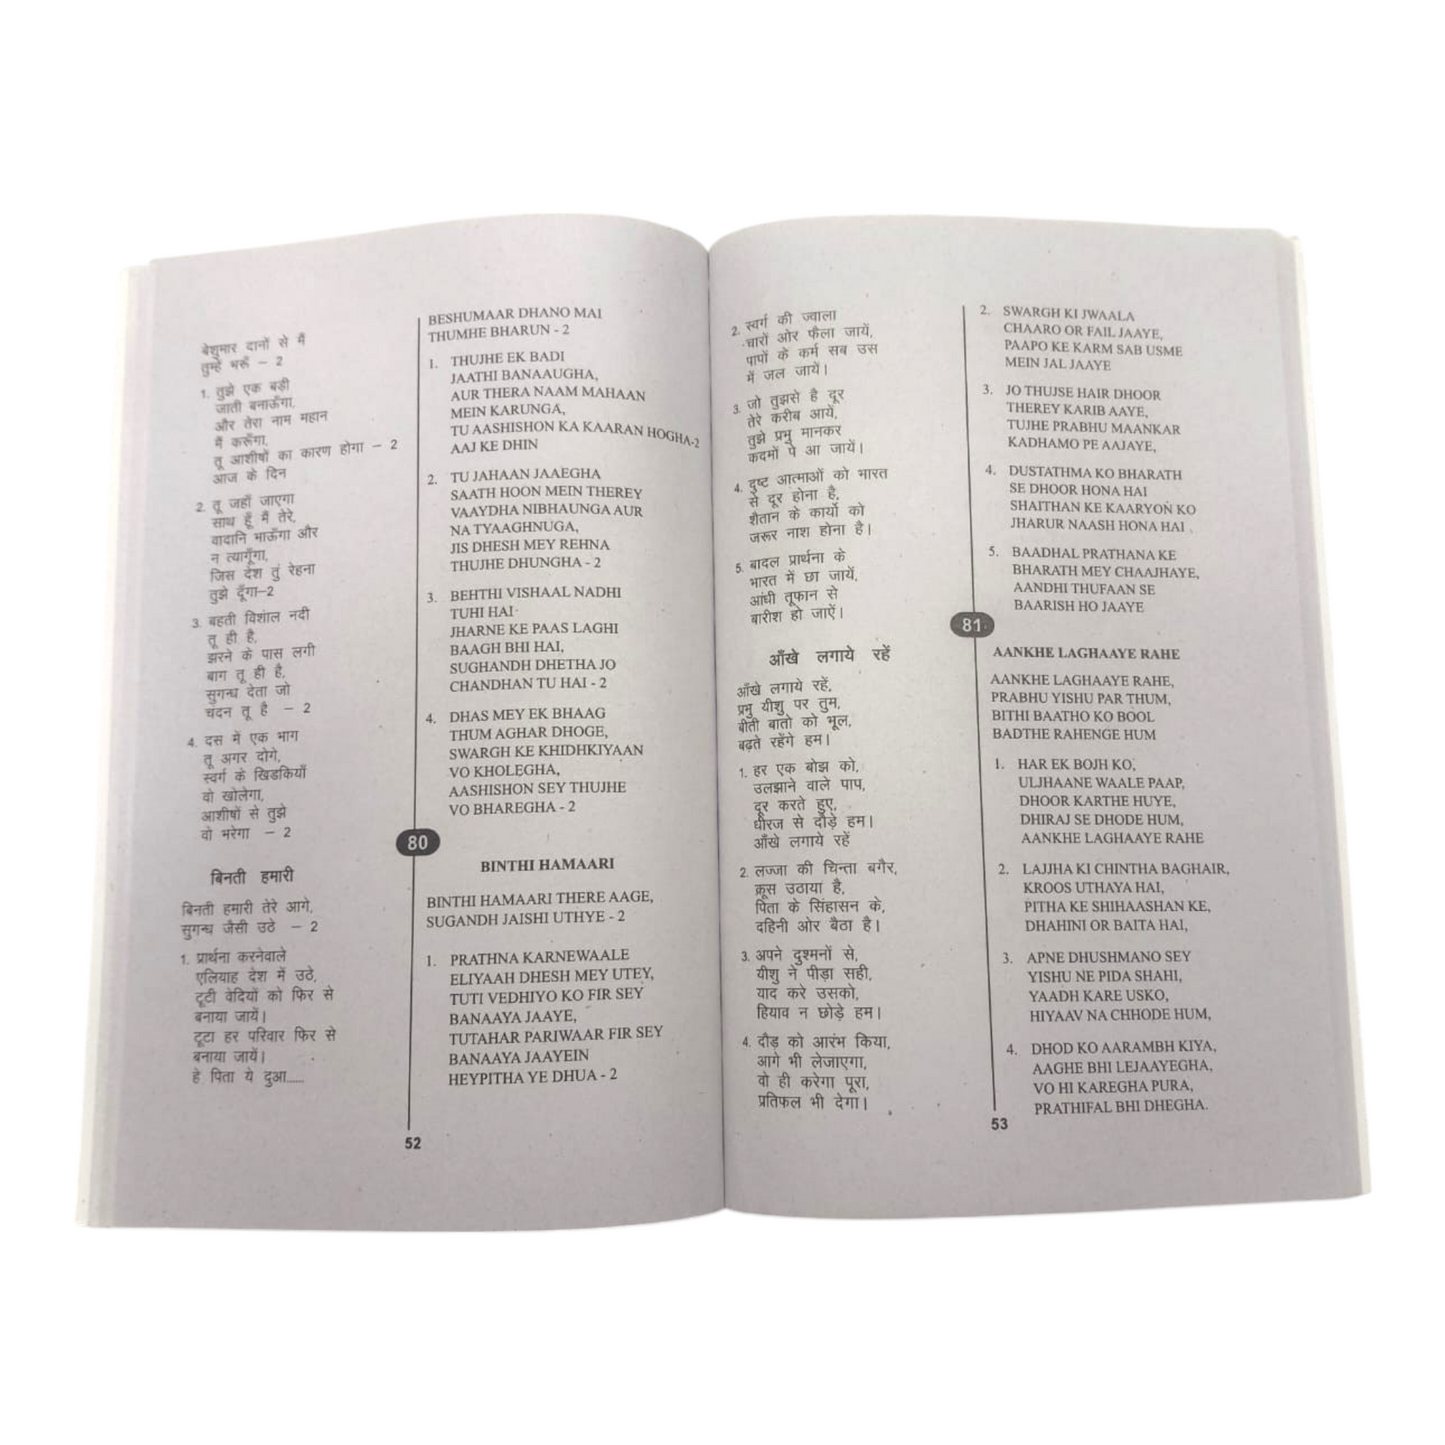 बेशुमार दानों से मैं
तुम्हें भरूँ – 2
1. तुझे एक बड़ी
जाती बनाऊँगा,
और तेरा नाम महान
मैं करूँगा,
तू आशीषों का कारण होगा – 2
आज के दिन
2. तू जहाँ जाएगा
साथ हूँ मैं तेरे,
वादानि भाऊँगा और
न त्यागूँगा,
जिस देश तुं रेहना
तुझे दूँगा–2
3. बहती विशाल नदी
तू ही है,
झरने के पास लगी
बाग तू ही है,
सुगन्ध देता जो
चंदन तू है – 2
4. दस में एक भाग
तू अगर दोगे,
स्वर्ग के खिडकियाँ
वो खोलेगा,
आशीषों से तुझे
वो भरेगा – 2
बिनती हमारी
बिनती हमारी तेरे आगे,
सुगन्ध जैसी उठे – 2
1. प्रार्थना करनेवाले
एलियाह देश में उठे,
टूटी वेदियों को फिर से
बनाया जायें।
टूटा हर परिवार फिर से
बनाया जायें।
हे पिता ये दुआ.....
BESHUMAAR DHANO MAI
THUMHE BHARUN - 2
1. THUJHE EK BADI
JAATHI BANAAUGHA,
AUR THERA NAAM MAHAAN
MEIN KARUNGA,
TU AASHISHON KA KAARAN HOGHA-2
AAJ KE DHIN
2. TU JAHAAN JAAEGHA
SAATH HOON MEIN THEREY
VAAYDHA NIBHAUNGA AUR
NA TYAAGHNUGA,
JIS DHESH MEY REHNA
THUJHE DHUNGHA - 2
3. BEHTHI VISHAAL NADHI
TUHI HAI
JHARNE KE PAAS LAGHI
BAAGH BHI HAI,
SUGHANDH DHETHA JO
CHANDHAN TU HAI - 2
4. DHAS MEY EK BHAAG
THUM AGHAR DHOGE,
SWARGH KE KHIDHKIYAAN
VO KHOLEGHA,
AASHISHON SEY THUJHE
VO BHAREGHA - 2
80
BINTHI HAMAARI
BINTHI HAMAARI THERE AAGE,
SUGANDH JAISHI UTHYE - 2
1. PRATHNA KARNEWAALE
ELIYAAH DHESH MEY UTEY,
TUTI VEDHIYO KO FIR SEY
BANAAYA JAAYE,
TUTAHAR PARIWAAR FIR SEY
BANAAYA JAAYEIN
HEYPITHA YE DHUA - 2
52
2. स्वर्ग की ज्वाला
चारों ओर फैला जायें,
पापों के कर्म सब उस
में जल जायें।
3. जो तुझसे है दूर
तेरे करीब आयें,
तुझे प्रभु मानकर
कदमों पे आ जायें।
4. दुष्ट आत्माओं को भारत
से दूर होना है,
शैतान के कार्यो को
जरूर नाश होना है।
5. बादल प्रार्थना के
भारत में छा जायें,
आंधी तूफान से
बारीश हो जाऐं।
आँखे लगाये रहें
आँखे लगाये रहें,
प्रभु यीशु पर तुम,
बीती बातो को भूल,
बढ़ते रहेंगे हम।
1. हर एक बोझ को,
उलझाने वाले पाप,
दूर करते हुए,
धीरज से दौड़े हम।
आँखे लगाये रहें
2. लज्जा की चिन्ता बगैर,
क्रूस उठाया है,
पिता के सिंहासन के,
दहिनी ओर बैठा है।
3. अपने दुश्मनों से,
यीशु ने पीड़ा सही,
याद करे उसको,
हियाव न छोड़े हम।
4. दौड़ को आरंभ किया,
आगे भी लेजाएगा,
वो ही करेगा पूरा,
प्रतिफल भी देगा।
2. SWARGH KI JWAALA
CHAARO OR FAIL JAAYE,
PAAPO KE KARM SAB USME
MEIN JAL JAAYE
3. JO THUJSE HAIR DHOOR
THEREY KARIB AAYE,
TUJHE PRABHU MAANKAR
KADHAMO PE AAJAYE,
4. DUSTATHMA KO BHARATH
SE DHOOR HONA HAI
SHAITHAN KE KAARYON KO
JHARUR NAASH HONA HAI
5. BAADHAL PRATHANA KE
BHARATH MEY CHAAJHAYE,
AANDHI THUFAAN SE
BAARISH HO JAAYE
81
AANKHE LAGHAAYE RAHE
AANKHE LAGHAAYE RAHE,
PRABHU YISHU PAR THUM,
BITHI BAATHO KO BOOL
BADTHE RAHENGE HUM
1. HAR EK BOJH KO,
ULJHAANE WAALE PAAP,
DHOOR KARTHE HUYE,
DHIRAJ SE DHODE HUM,
AANKHE LAGHAAYE RAHE
2. LAJJHA KI CHINTHA BAGHAIR,
KROOS UTHAYA HAI,
PITHA KE SHIHAASHAN KE,
DHAHINI OR BAITA HAI,
3. APNE DHUSHMANO SEY
YISHU NE PIDA SHAHI,
YAADH KARE USKO,
HIYAAV NA CHHODE HUM,
4. DHOD KO AARAMBH KIYA,
AAGHE BHI LEJAAYEGHA,
VO HI KAREGHA PURA,
PRATHIFAL BHI DHEGHA.
53